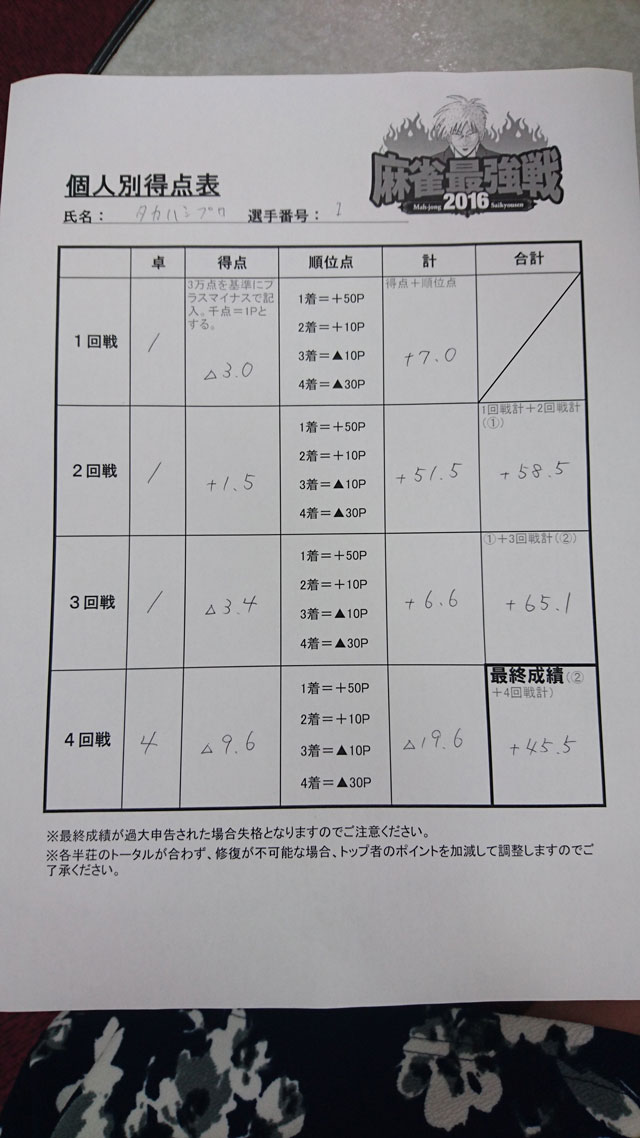 麻雀最強戦
Mah-jong 2016 Saikyousen
個人別得点表
氏名： タカハシプロ 選手番号： 1
卓 得点 順位点 計 合計
1回戦
/
3万点を基準にプ
ラスマイナスで記
入。千点＝1Pと
する。
△3.0
1着＝＋50P
2着＝＋10P
3着＝▲10P
4着＝▲30P
得点＋順位点
+7.0
2回戦
/
+1.5
1着＝＋50P
2着＝＋10P
3着＝▲10P
4着＝▲30P
+51.5
1回戦計＋2回戦計
(①)
+58.5
3回戦
/
△3.4
1着＝＋50P
2着＝＋10P
3着＝▲10P
4着＝▲30P
+6.6
①＋3回戦計(②)
+65.1
4回戦
4
△9.6
1着＝＋50P
2着＝＋10P
3着＝▲10P
4着＝▲30P
△19.6
最終成績(②
＋4回戦計)
+45.5
※最終成績が過大申告された場合失格となりますのでご注意ください。
※各半荘のトータルが合わず、修復が不可能な場合、トップ者のポイントを加減して調整しますのでご
了承ください。